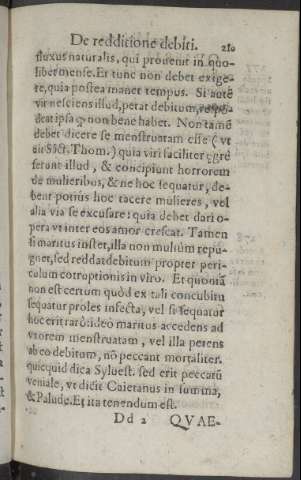 De redditione debiti. 210
fluxus naturalis, qui prouenit in quo-
libet mense. Et tunc non debet exige-
re, quia postea manet tempus. Si autē
vir nesciens illud, petat debitum, respō-
deat ipsa ꝙ non bene habet. Non tamē
debet dicere se menstruatam esse (vt
ait Sāct. Thom.) quia viri faciliter ęgrè
ferunt illud, & concipiunt horrorem
de mulieribus, & ne hoc sequatur, de-
bent potius hoc tacere mulieres, vel
alia via se excusare: quia debet dari o-
pera vt inter eos amor crescat. Tamen
si maritus instet, illa non multùm repu-
gnet, sed reddat debitum propter peri-
culum corruptionis in viro. Et quoniā
non est certum quòd ex tali concubitu
sequatur proles infecta, vel si sequatur
hoc erit rarò: ideo maritus accedens ad
vxorem menstruatam, vel illa petens
ab eo debitum, nō peccant mortaliter.
quicquid dica Syluest. sed erit peccatū
veniale, vt dicit Caietanus in summa,
& Palude. Et ita tenendum est.
Dd 2 QVAE-